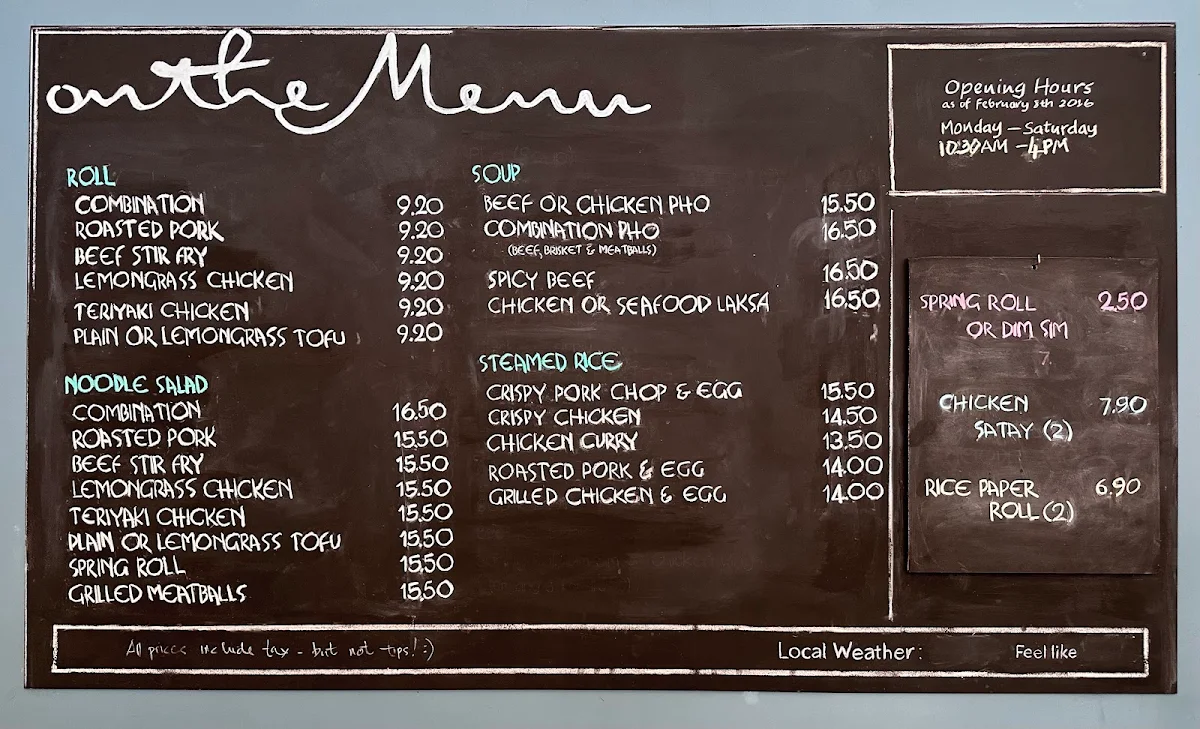 on the Menu
ROLL
COMBINATION 9.20
ROASTED PORK 9.20
BEEF STIR FRY 9.20
LEMONGRASS CHICKEN 9.20
TERIYAKI CHICKEN 9.20
PLAIN OR LEMONGRASS TOFU 9.20
NOODLE SALAD
COMBINATION 16.50
ROASTED PORK 15.50
BEEF STIR FRY 15.50
LEMONGRASS CHICKEN 15.50
TERIYAKI CHICKEN 15.50
PLAIN OR LEMONGRASS TOFU 15.50
SPRING ROLL 15.50
GRILLED MEATBALLS 15.50
SOUP
BEEF OR CHICKEN PHO 15.50
COMBINATION PHO 16.50
(BEEF, BRISKET & MEATBALLS)
SPICY BEEF 16.50
CHICKEN OR SEAFOOD LAKSA 16.50
STEAMED RICE
CRISPY PORK CHOP & EGG 15.50
CRISPY CHICKEN 14.50
CHICKEN CURRY 13.50
ROASTED PORK & EGG 14.00
GRILLED CHICKEN & EGG 14.00
Opening Hours
as of February 8th 2016
Monday - Saturday
10:30AM - 4PM
SPRING ROLL 2.50
OR DIM SIM
CHICKEN 7.90
SATAY (2)
RICE PAPER 6.90
ROLL (2)
All prices include tax - but not tips! :)
Local Weather: Feel like